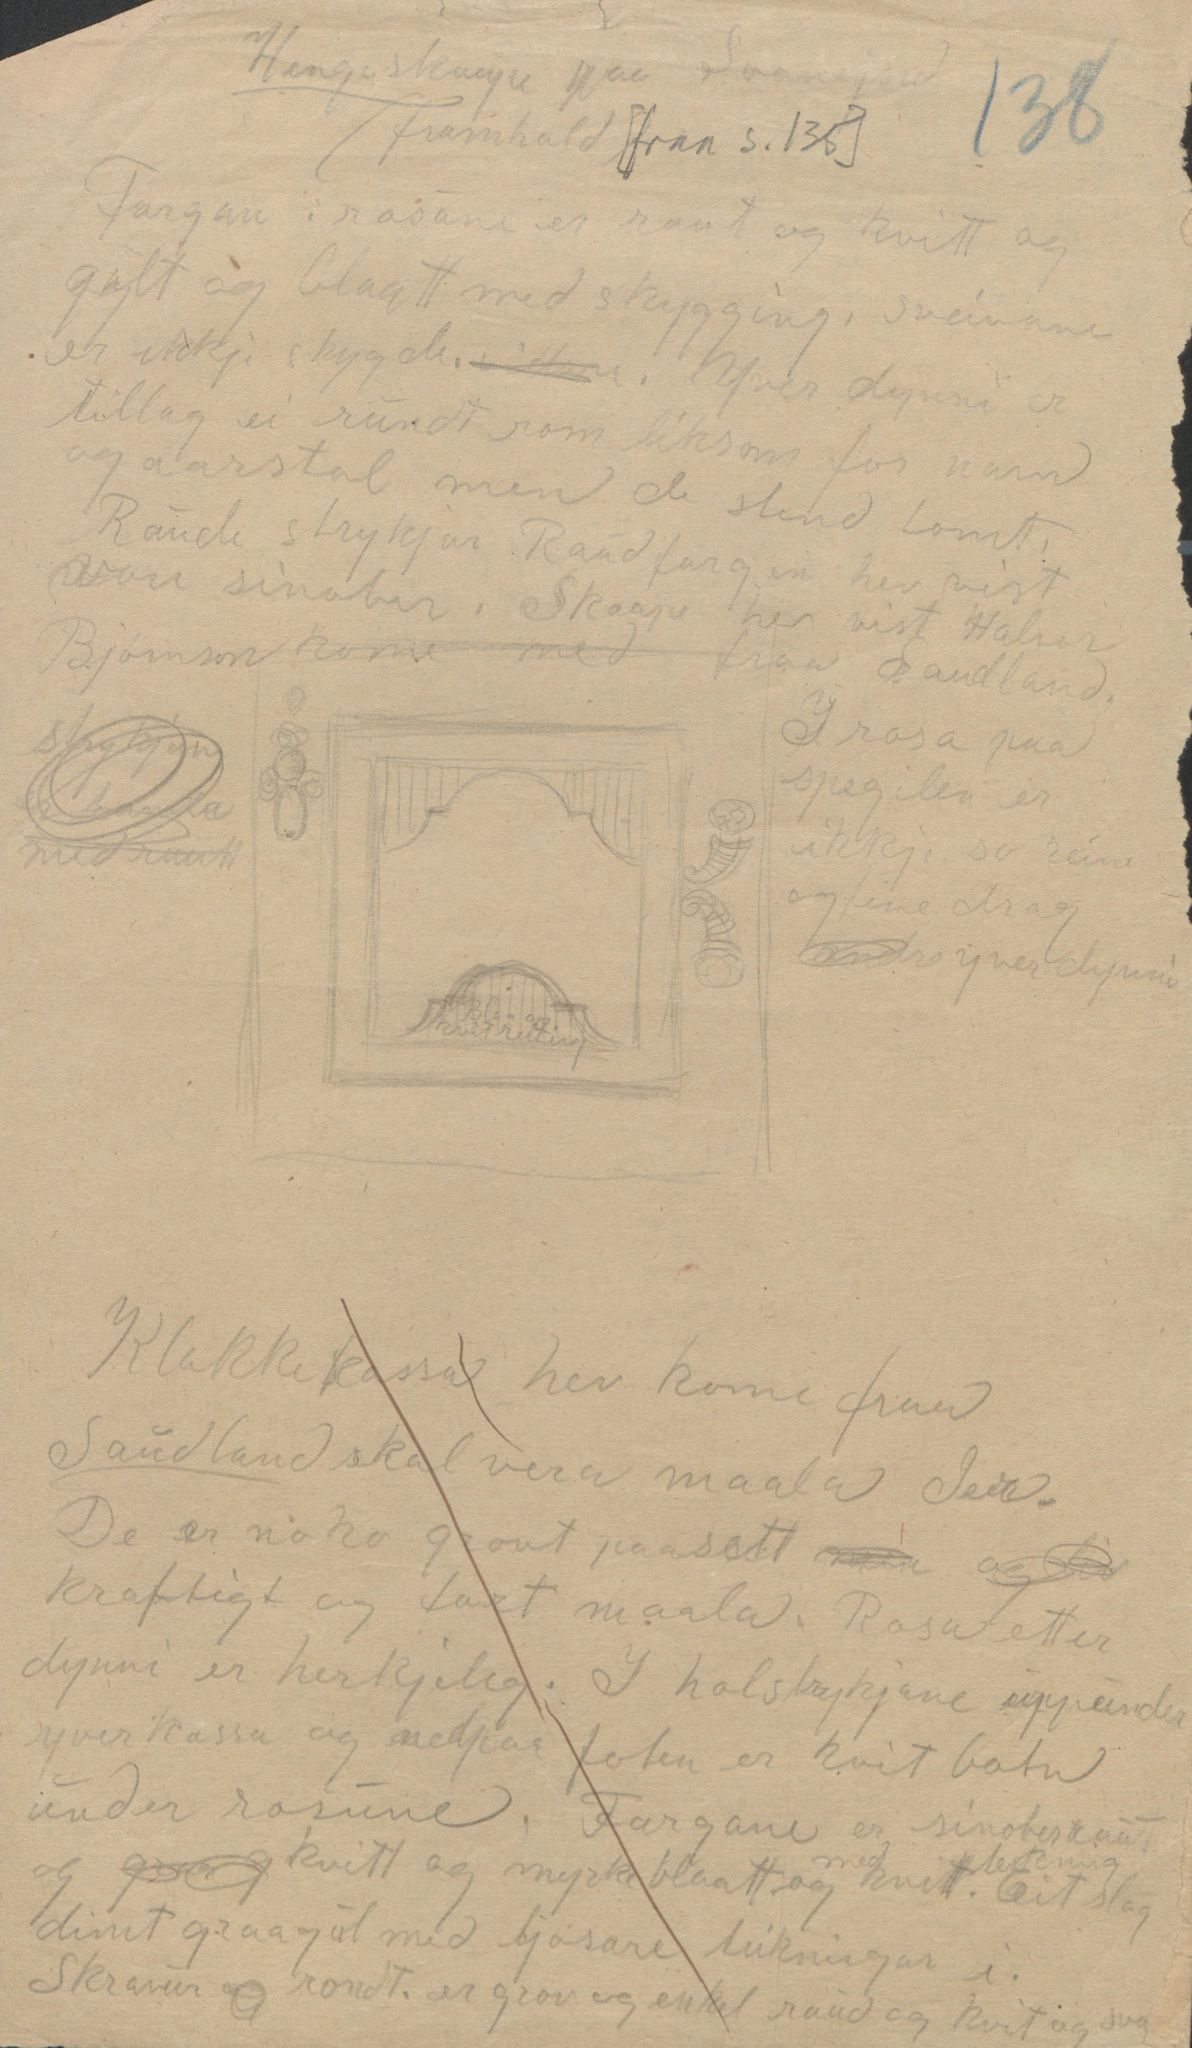 138
Hengeskaape paa
Framhald [fraa s. 136]
Fargan i rosune er raut og kvitt og
gult og blaatt med skygging, sveivane
er ikkje skygde. Yver dynni er
tillag ei rundt rom liksom for namn
og aarstal men de stend tomt.
Raude strykjar Raudfargin hev vist
vori sinober. Skaape hev vist Halvor
Bjørnson kome med fraa Saudland.
strykjun
med rautt
Y rosa paa
spegilen er
ikkje so reine
og fine drag
yver dynni
Blaa og
kvit
Klokkekassa hev kome fraa
Saudland skal vera maala
De er noko grovt paasett og
kraftigt og fort maala. Rosa etter
dynni er herkjeleg. Y holstrykjane uppunder
yverkassa og nedpaa foten er kvit botn
under rosune. Fargane er sinoberraut
og kvitt og myrkeblaatt og kvitt. Eit slag
med
dimt graagul med ljosare teikningar i.
Skravur og rondt. er grov og enkel raud og kvit og sva